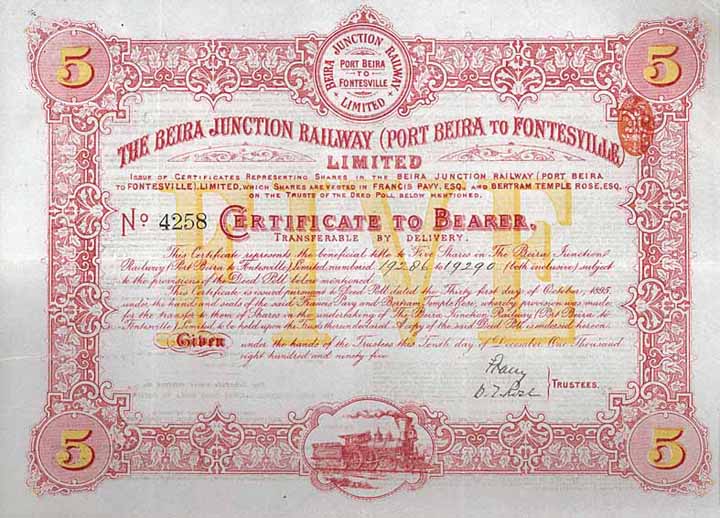 5
BEIRA JUNCTION RAILWAY
PORT BEIRA
TO
FONTESVILLE
LIMITED
5
THE BEIRA JUNCTION RAILWAY (PORT BEIRA TO FONTESVILLE)
LIMITED
ISSUE OF CERTIFICATES REPRESENTING SHARES IN THE BEIRA JUNCTION RAILWAY (PORT BEIRA
TO FONTESVILLE) LIMITED, WHICH SHARES ARE VESTED IN FRANCIS PAVY, ESQ., AND BERTRAM TEMPLE ROSE, ESQ.,
ON THE TRUSTS OF THE DEED POLL BELOW MENTIONED.
FIVE
No 4258 CERTIFICATE TO BEARER.
TRANSFERABLE BY DELIVERY.
This Certificate represents the beneficial title to Five Shares in The Beira Junction
Railway (Port Beira to Fontesville) Limited, numbered 19286 to 19290 (both inclusive) subject
to the provisions of the Deed Poll below mentioned.
This Certificate is issued pursuant to a Deed Poll dated the Thirty first day of October, 1895,
under the hands and seals of the said Francis Pavy and Bertram Temple Rose, whereby provision was made
for the transfer to them of Shares in the undertaking of The Beira Junction Railway (Port Beira to
Fontesville) Limited to be held upon the Trusts therein declared. A copy of the said Deed Poll is endorsed hereon.
Given under the hands of the Trustees this Tenth day of December One Thousand
eight hundred and ninety five.
FPavy
B. T. Rose
TRUSTEES.
5
5